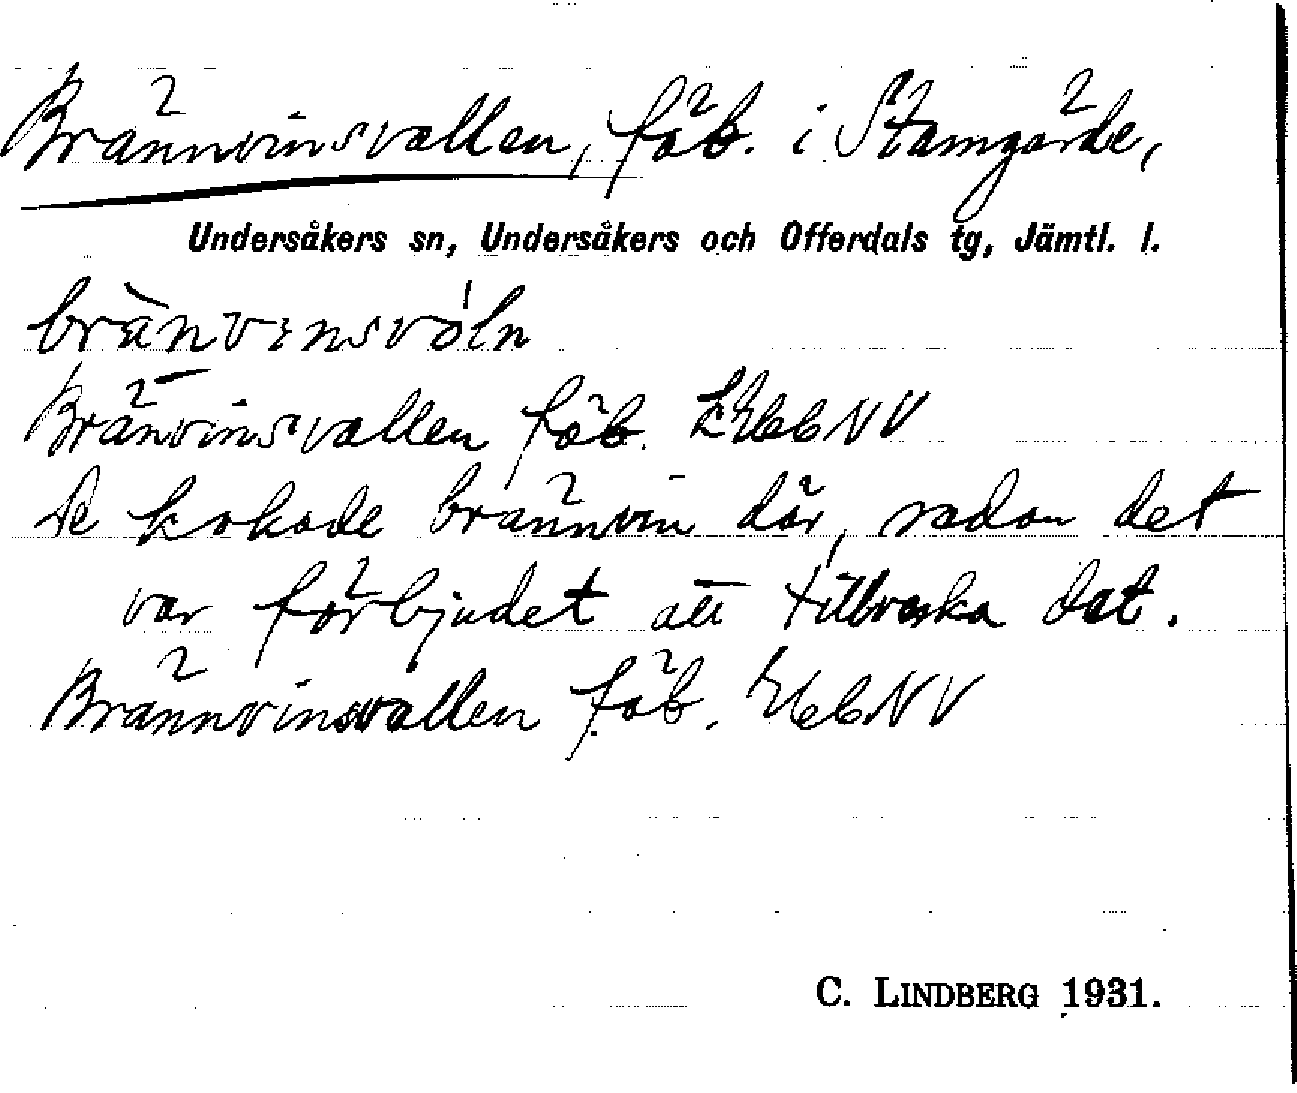 Brännvinsvallen, fäb. i Stamgärde,
Undersåkers sn, Undersåkers och Offerdals tg, Jämtl. l.
brànvinsvóln
Bränvinsvallen fäb.
De kokade brännvin där, sedan det
var förbjudet att tillverka det.
Brännvinsvallen fäb.
C. LINDBERG 1931.